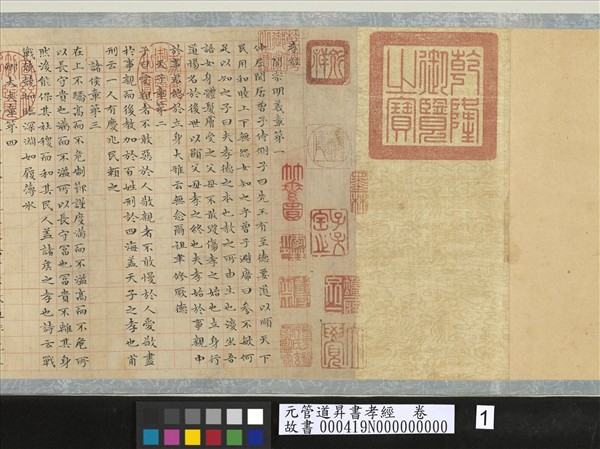 乾隆御覽之寶
孝經
開宗明義章第一
仲尼閒居曾子侍側子曰先王有至德要道以順天下
民用和睦上下無怨女知之乎曾子避席曰參不敏何
足以知之子曰夫孝德之本也教之所由生也復坐吾
語女身體髮膚受之父母不敢毀傷孝之始也立身行
道揚名於後世以顯父母孝之終也夫孝始於事親中
於事君終於立身大雅云無念爾祖聿修厥德
天子章第二
子曰愛親者不敢惡於人敬親者不敢慢於人愛敬盡
於事親而後教加於百姓刑於四海蓋天子之孝也甫
刑云一人有慶兆民賴之
諸侯章第三
在上不驕高而不危制節謹度滿而不溢高而不危所
以長守貴也滿而不溢所以長守富也富貴不離其身
然後能保其社稷而和其民人蓋諸侯之孝也詩云戰
戰兢兢如臨深淵如履薄冰
卿大夫章第四
元管道昇書孝經 卷
故書 000419N000000000
1